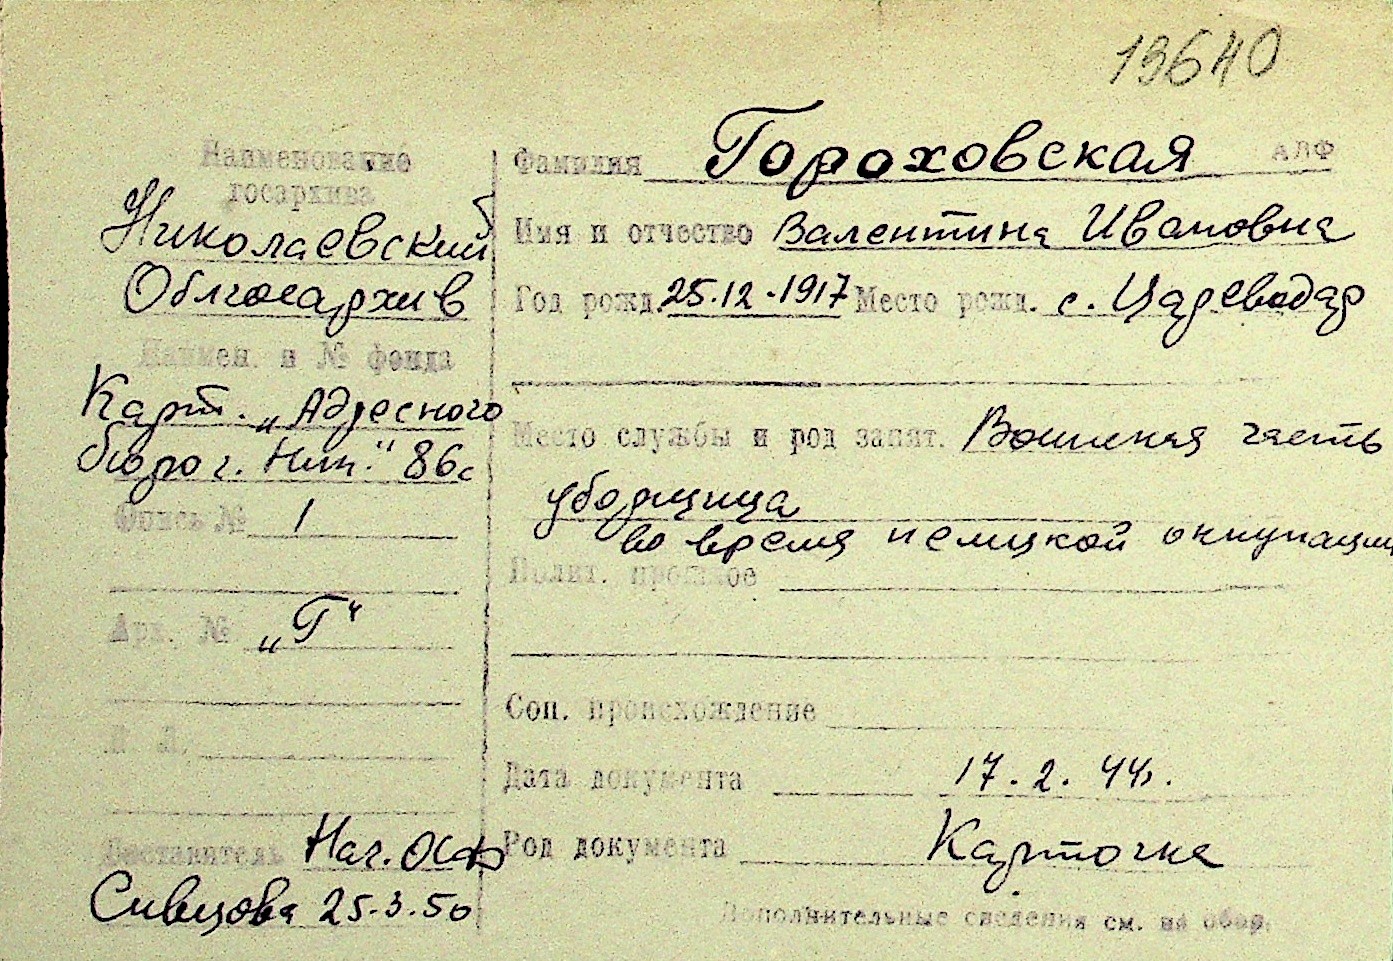 19640
Наименование
госархива
Николаевский
Облгосархив
Наимен. и № фонда
Карт. „Адресного
бюро г. Ник." 86с
Опись № 1
Арх. № „Г"
Л. Л.
Составитель Нач. ОСФ
Сивцова 25.3.50
Фамилия Гороховская АЛФ
Имя и отчество Валентина Ивановна
Год рожд. 25.12.1917 Место рожд. с. Цареводар
Место службы и род занят. Воинская часть
уборщица
во время немецкой оккупации
Полит. прошлое
Соц. происхождение
Дата документа 17.2.44г.
Род документа Карточка
Дополнительные сведения см. на обор.